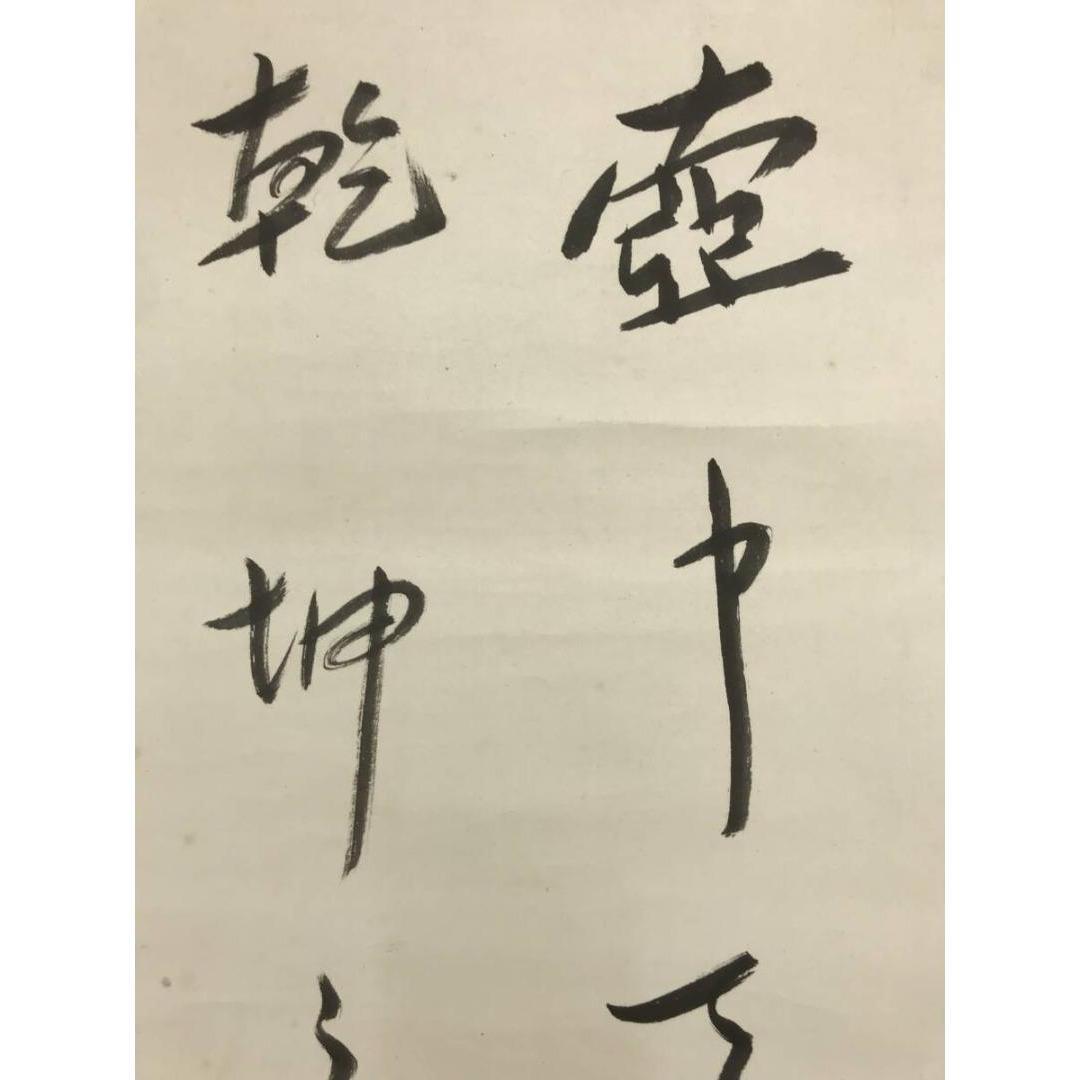 壺中
乾坤